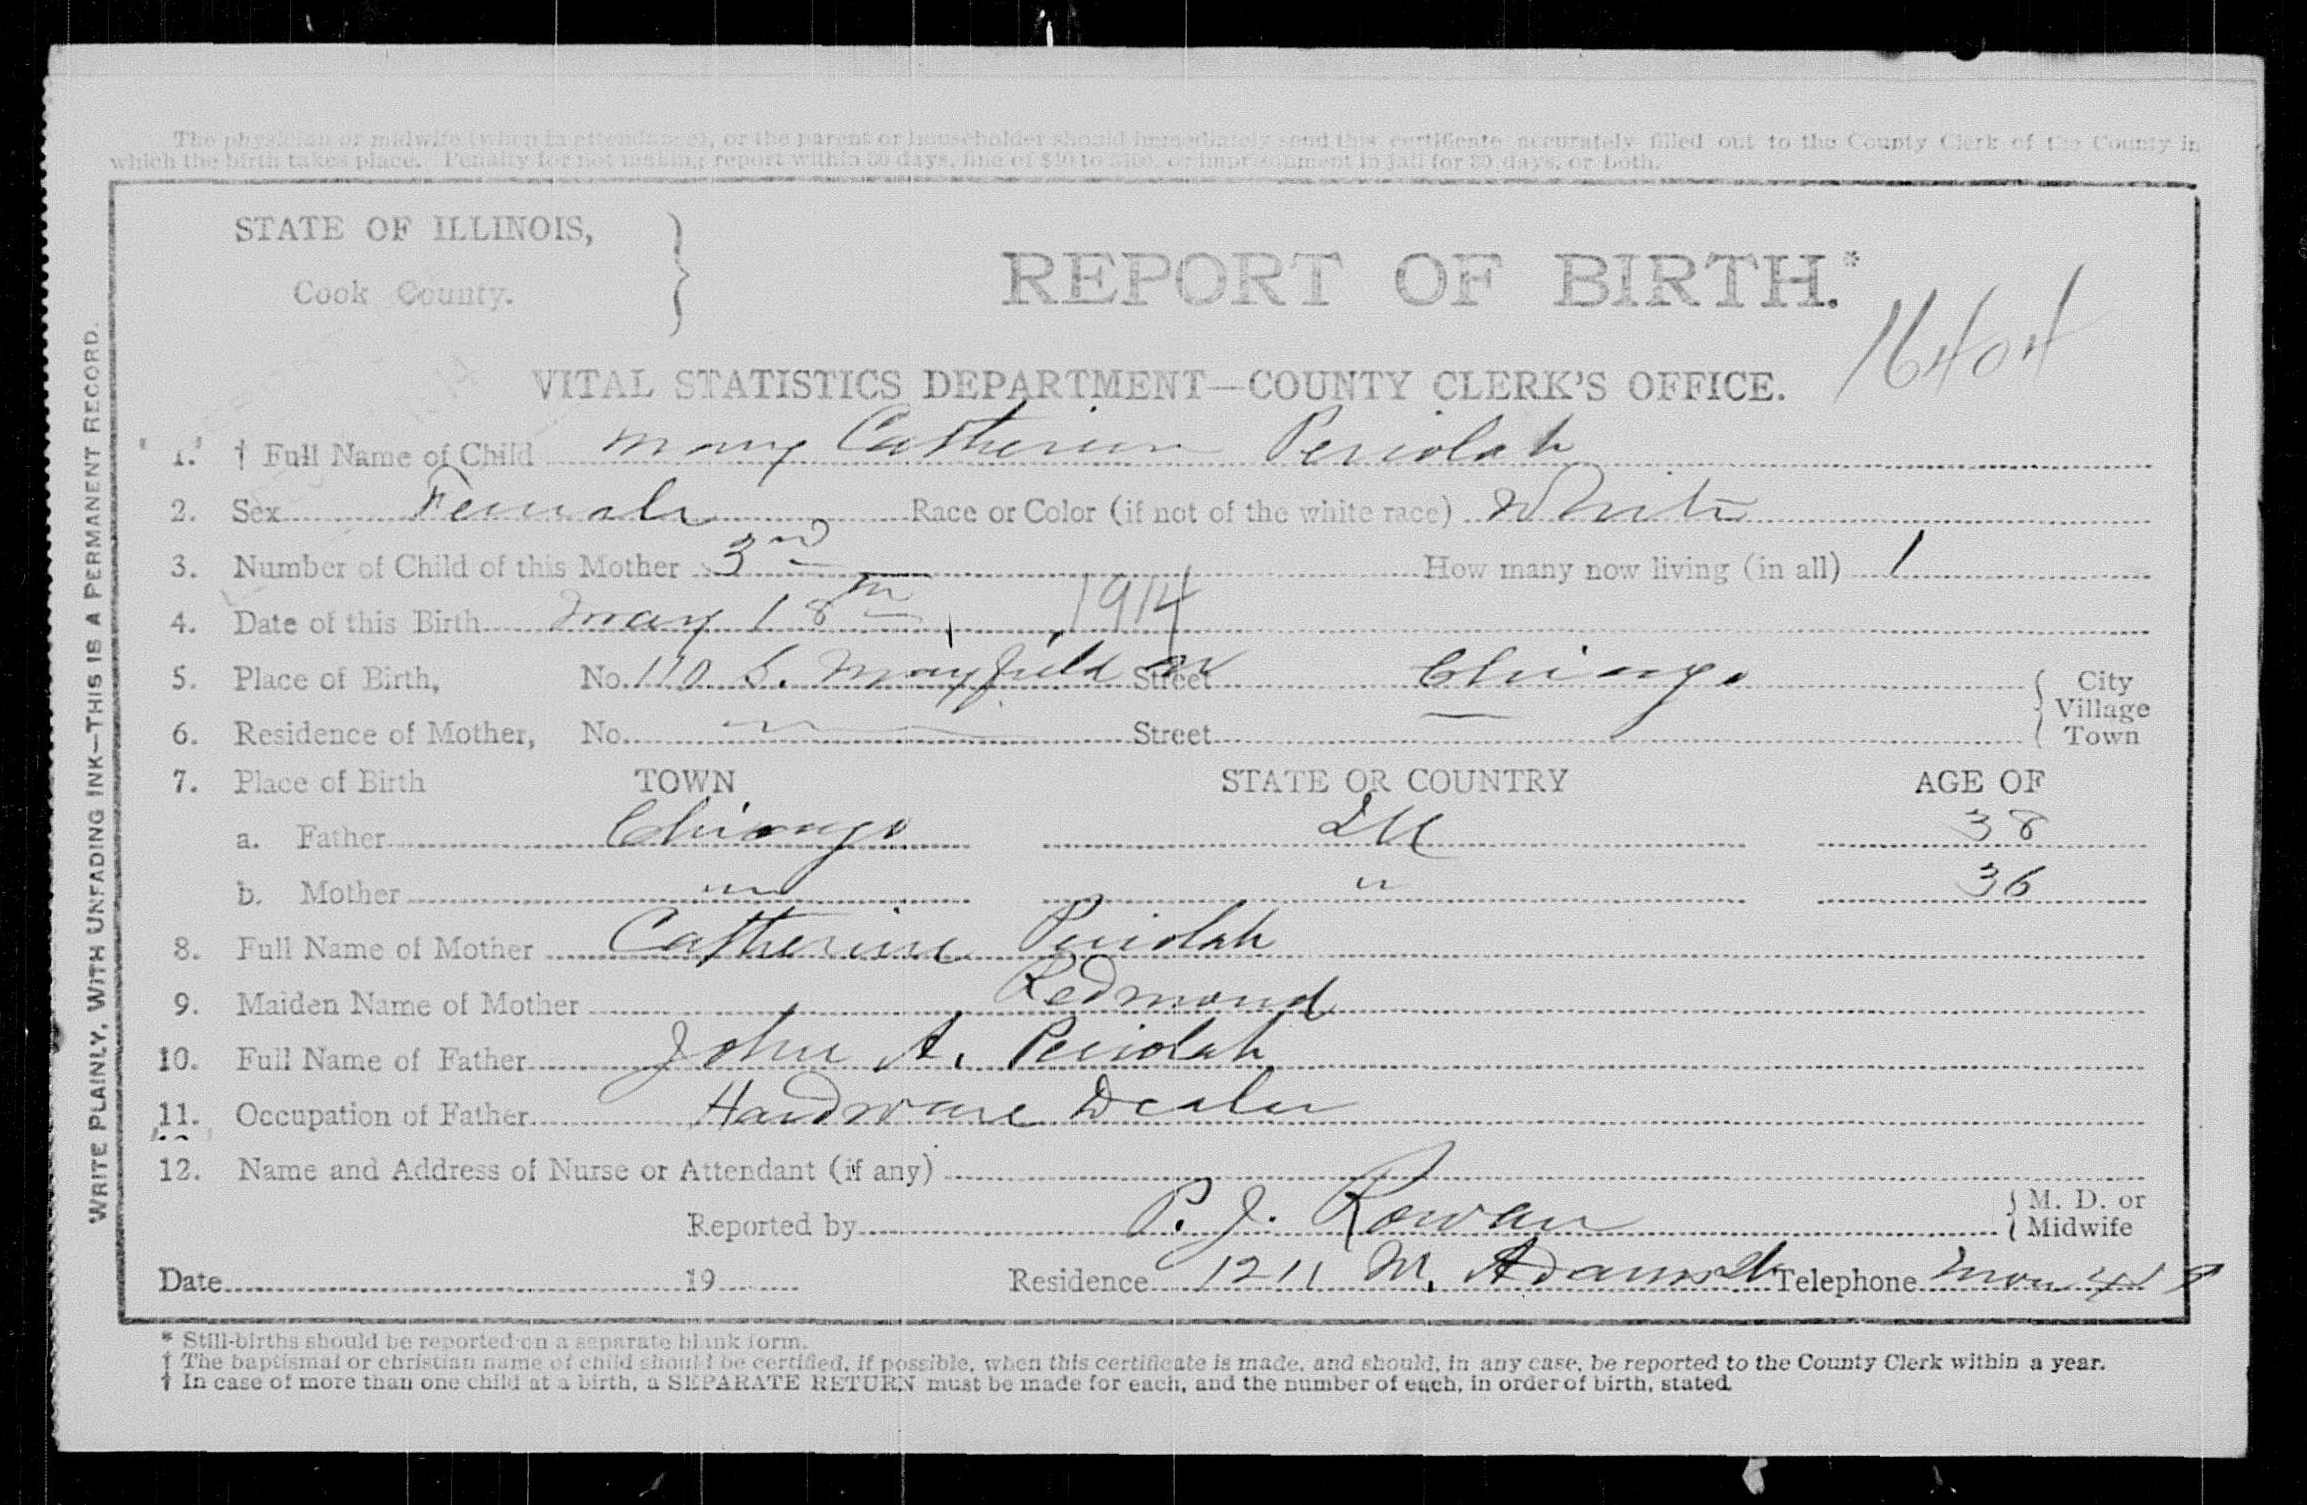 The physician or midwife (when in attendance), or the parent or householder should immediately send this certificate accurately filled out to the County Clerk of the County in
which the birth takes place. Penalty for not making report within 30 days, fine of $10 to $100, or imprisonment in jail for 30 days, or both.
STATE OF ILLINOIS,
Cook County.
REPORT OF BIRTH.*
16404
VITAL STATISTICS DEPARTMENT—COUNTY CLERK'S OFFICE.
1. † Full Name of Child Mary Catherine Periolah
2. Sex Female Race or Color (if not of the white race) White
3. Number of Child of this Mother 3rd How many now living (in all) 1
4. Date of this Birth May 18th, 1914
5. Place of Birth, No. 110 S. Mayfield av Street Chicago City
Village
6. Residence of Mother, No. " Street " Town
7. Place of Birth TOWN STATE OR COUNTRY AGE OF
a. Father Chicago Ill 38
b. Mother " " 36
8. Full Name of Mother Catherine Periolah
9. Maiden Name of Mother Redmond
10. Full Name of Father John A. Periolah
11. Occupation of Father Hardware Dealer
12. Name and Address of Nurse or Attendant (if any)
Reported by P. J. Rowan M. D. or
Midwife
Date 19 Residence 1211 Adams St Telephone
* Still-births should be reported on a separate blank form.
† The baptismal or christian name of child should be certified, if possible, when this certificate is made, and should, in any case, be reported to the County Clerk within a year.
† In case of more than one child at a birth, a SEPARATE RETURN must be made for each, and the number of each, in order of birth, stated.
WRITE PLAINLY, WITH UNFADING INK—THIS IS A PERMANENT RECORD.